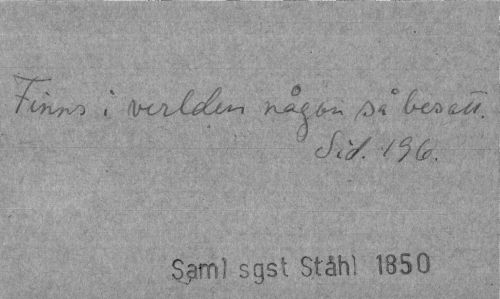 Finns i verlden någon så besatt.
Sid. 196.
Saml sgst Ståhl 1850